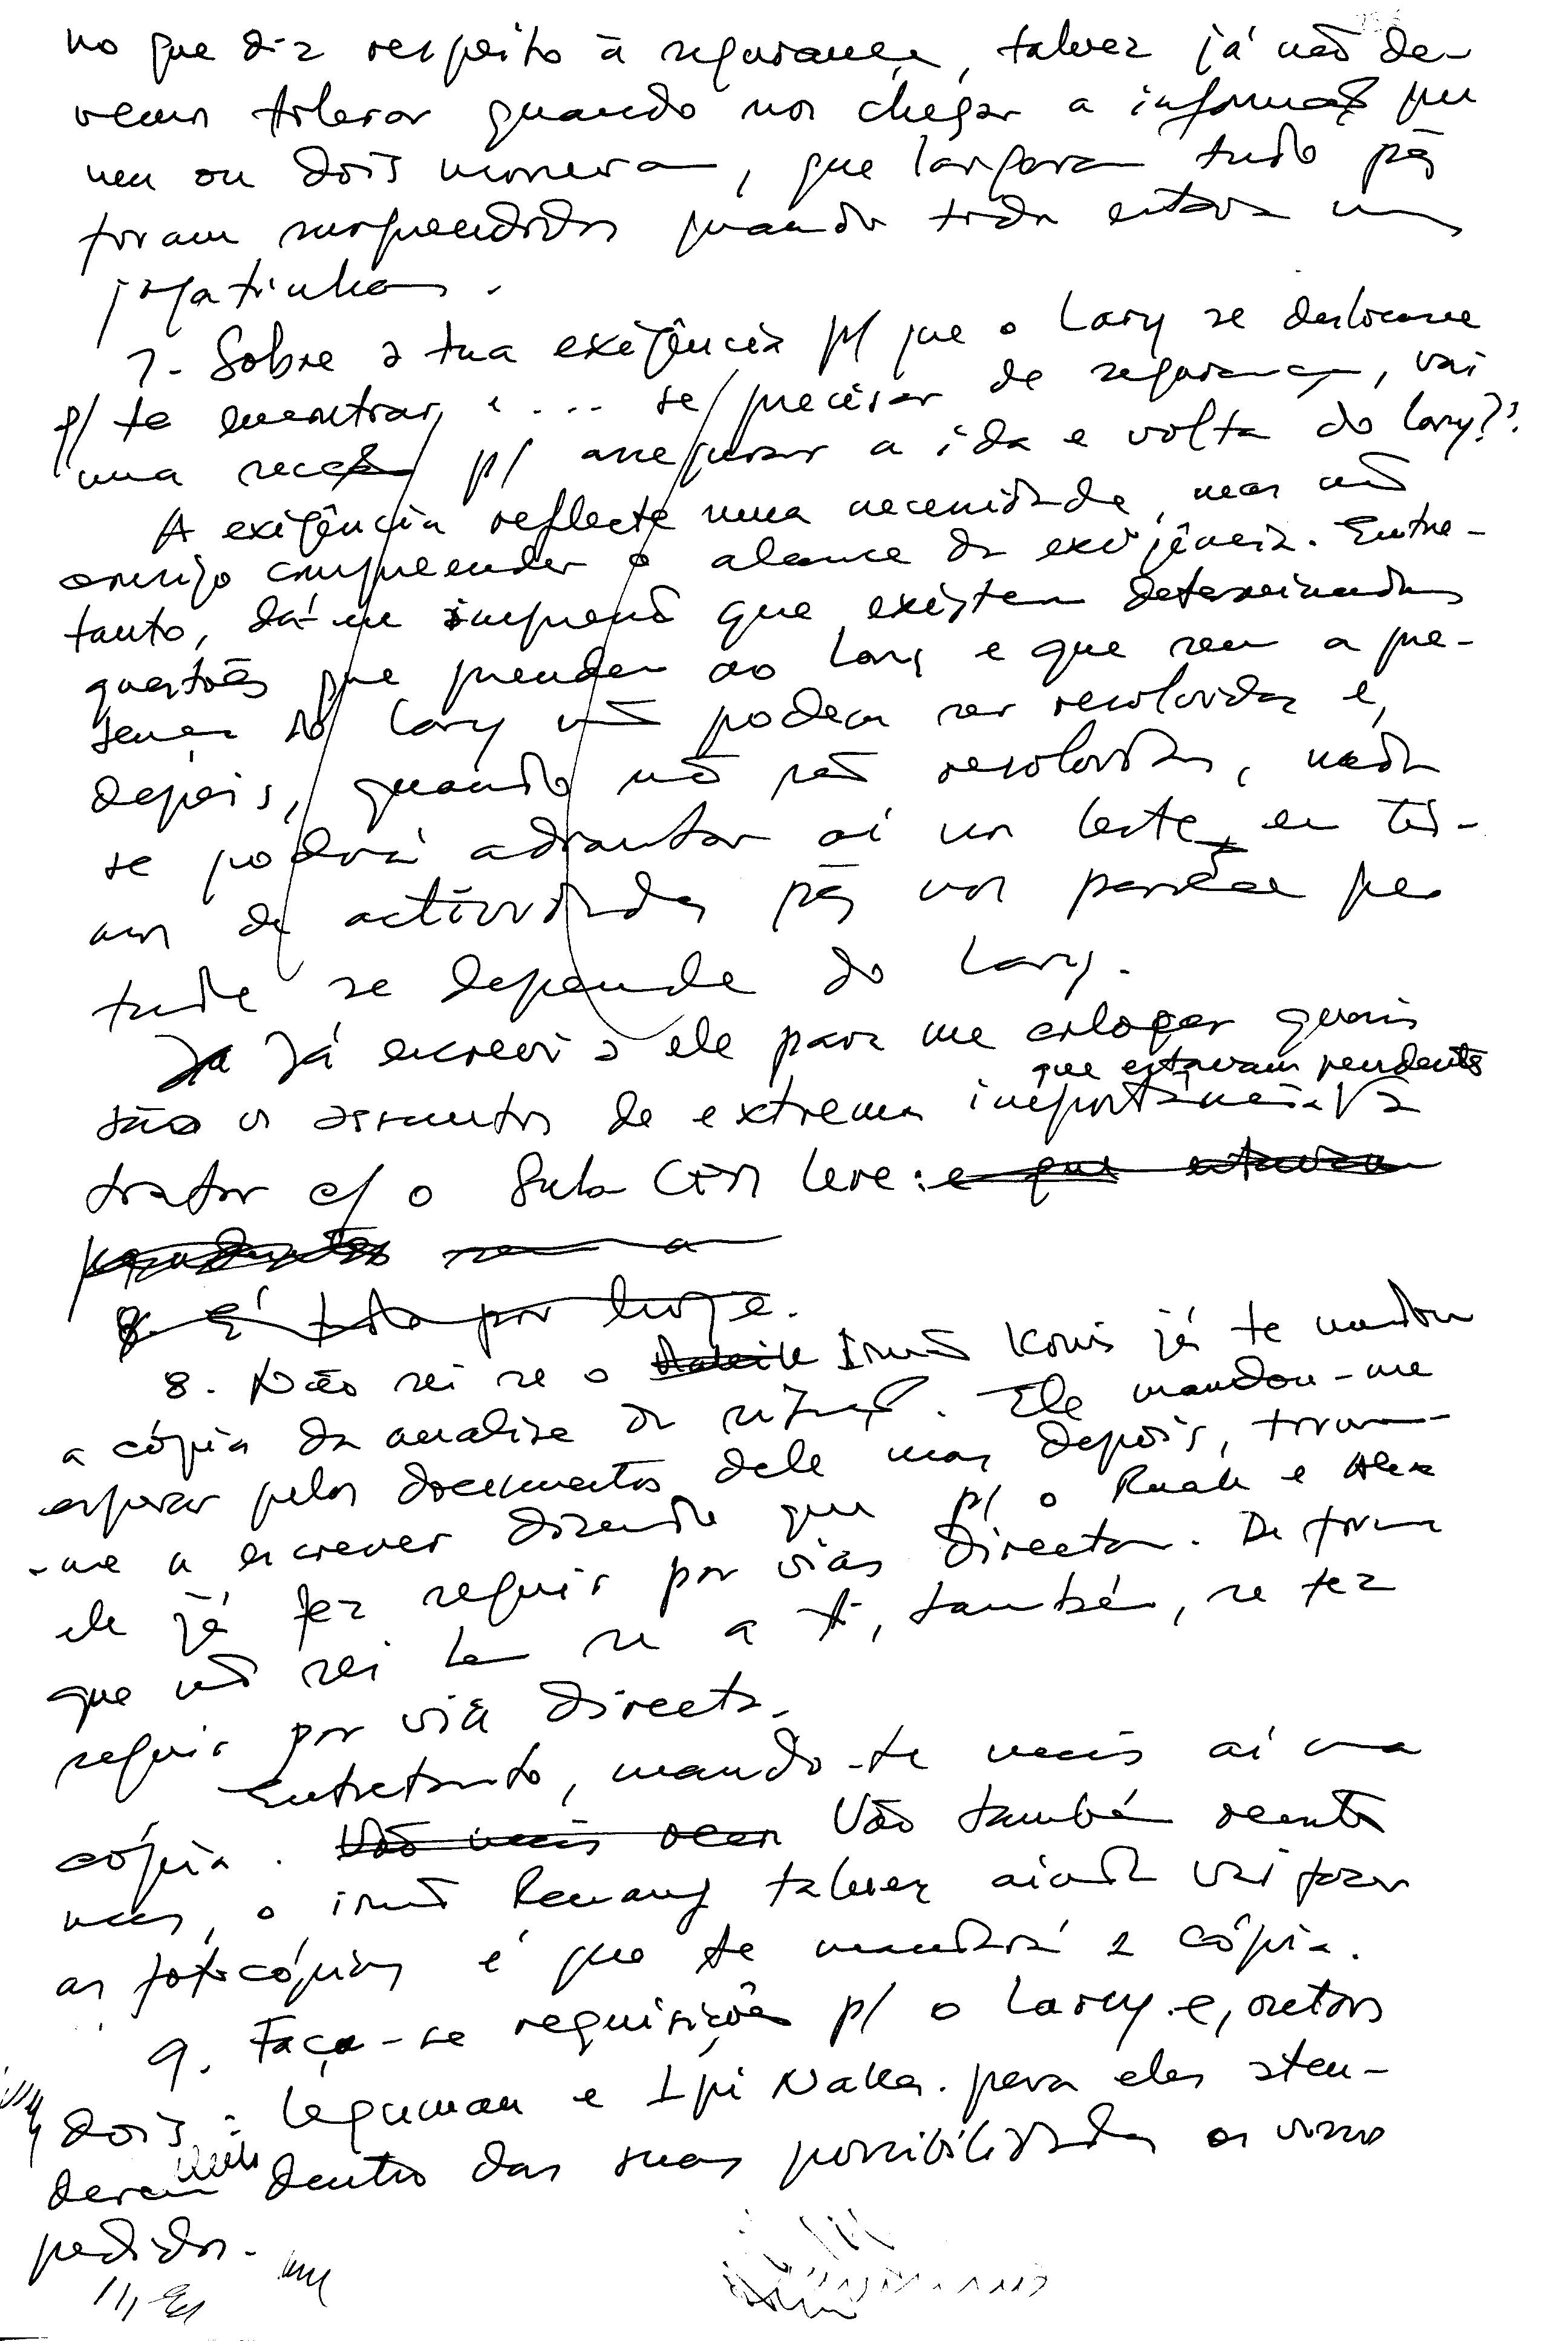 no que diz respeito à segurança, talvez já não de-
vemos tolerar quando nos chegar a informaç que
um ou dois morreram, que largaram tudo pq
foram surpreendidos quando todos estavam nas
jogatinhas.
7- Sobre a tua exigência p/ que o Lary se deslocasse
p/ te encontrar, e .... se precisar de segurança, vai
uma secção p/ assegurar a ida e volta do Lary??
A exigência reflecte uma necessidade, mas não
consigo compreender o alcance da exigência. Entre-
tanto, dá-me impressão que existem determinadas
questões que prendem ao Lary e que sem a pre-
sença do Lary não podem ser resolvidas e,
depois, quando não são resolvidas, nada
se poderá adiantar aí no leste, em ter-
mos de actividades pq nos parece que
tudo se depende do Lary.
Já Já escrevi a ele para me colocar quais
que estavam pendentes
são os assuntos de extrema importância a
tratar c/ o Sub Cmdt Lere: e que estavam
pendentes sem a
8. É tudo por hoje.
8. Não sei se o Irmão Konis já te mandou
a cópia da analise da situaç. Ele mandou-me
esperar pelos documentos dele mas depois, tornou-
-me a escrever dizendo que p/ o Ruak e Alex
ele já fez seguir por vias directas. De forma
que não sei se a ti, também, se fez
seguir por via directa.
Entretanto, mando-te mais aí uma
cópia. Vão mais Vão também
mas, o irmão talvez ainda vai fazer
as fotocópias é que te mandará a cópia.
9. Faça-se requisições p/ o Lary e, outros
dois: Leguman e Ipi Naka. para eles aten-
derem dentro das suas possibilidades os vossos
pedidos.